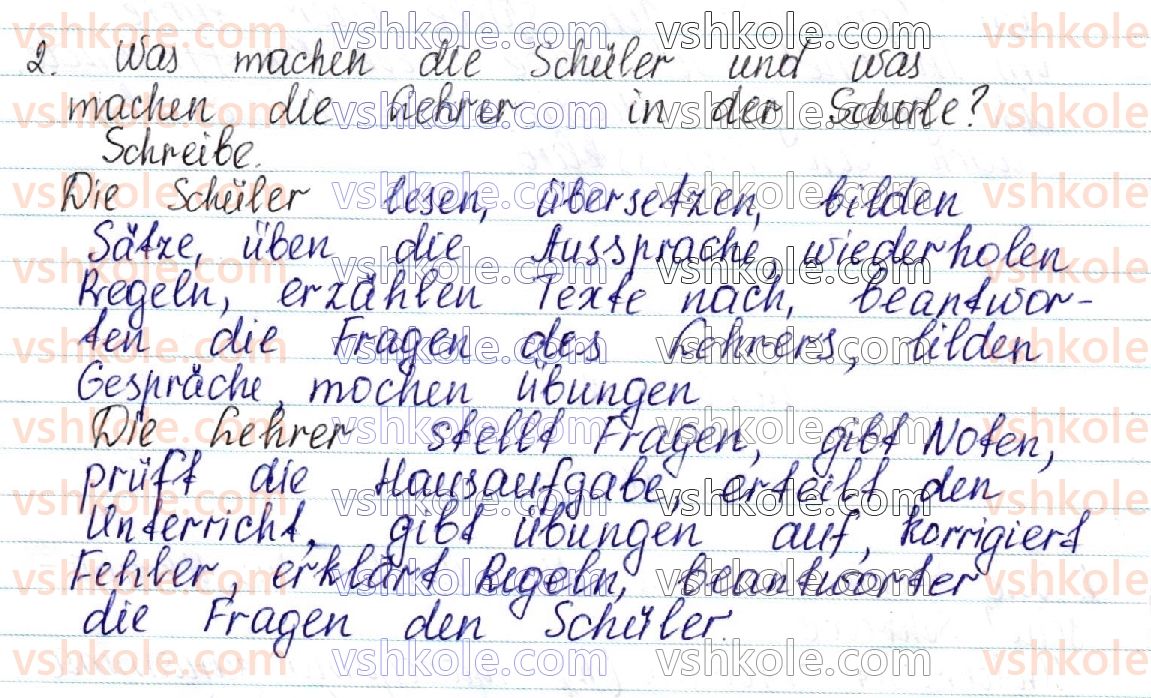 2. Was machen die Schüler und was
machen die Lehrer in der Schule?
Schreibe.
Die Schüler lesen, übersetzen, bilden
Sätze, üben die Aussprache, wiederholen
Regeln, erzählen Texte nach, beantwor-
ten die Fragen des Lehrers, bilden
Gespräche, mochen übungen
Die Lehrer stellt Fragen, gibt Noten,
prüft die Hausaufgabe, erteilt den
Unterricht, gibt übungen auf, korrigiert
Fehler, erklärt Regeln, beantworter
die Fragen den Schüler.
vshkole.com